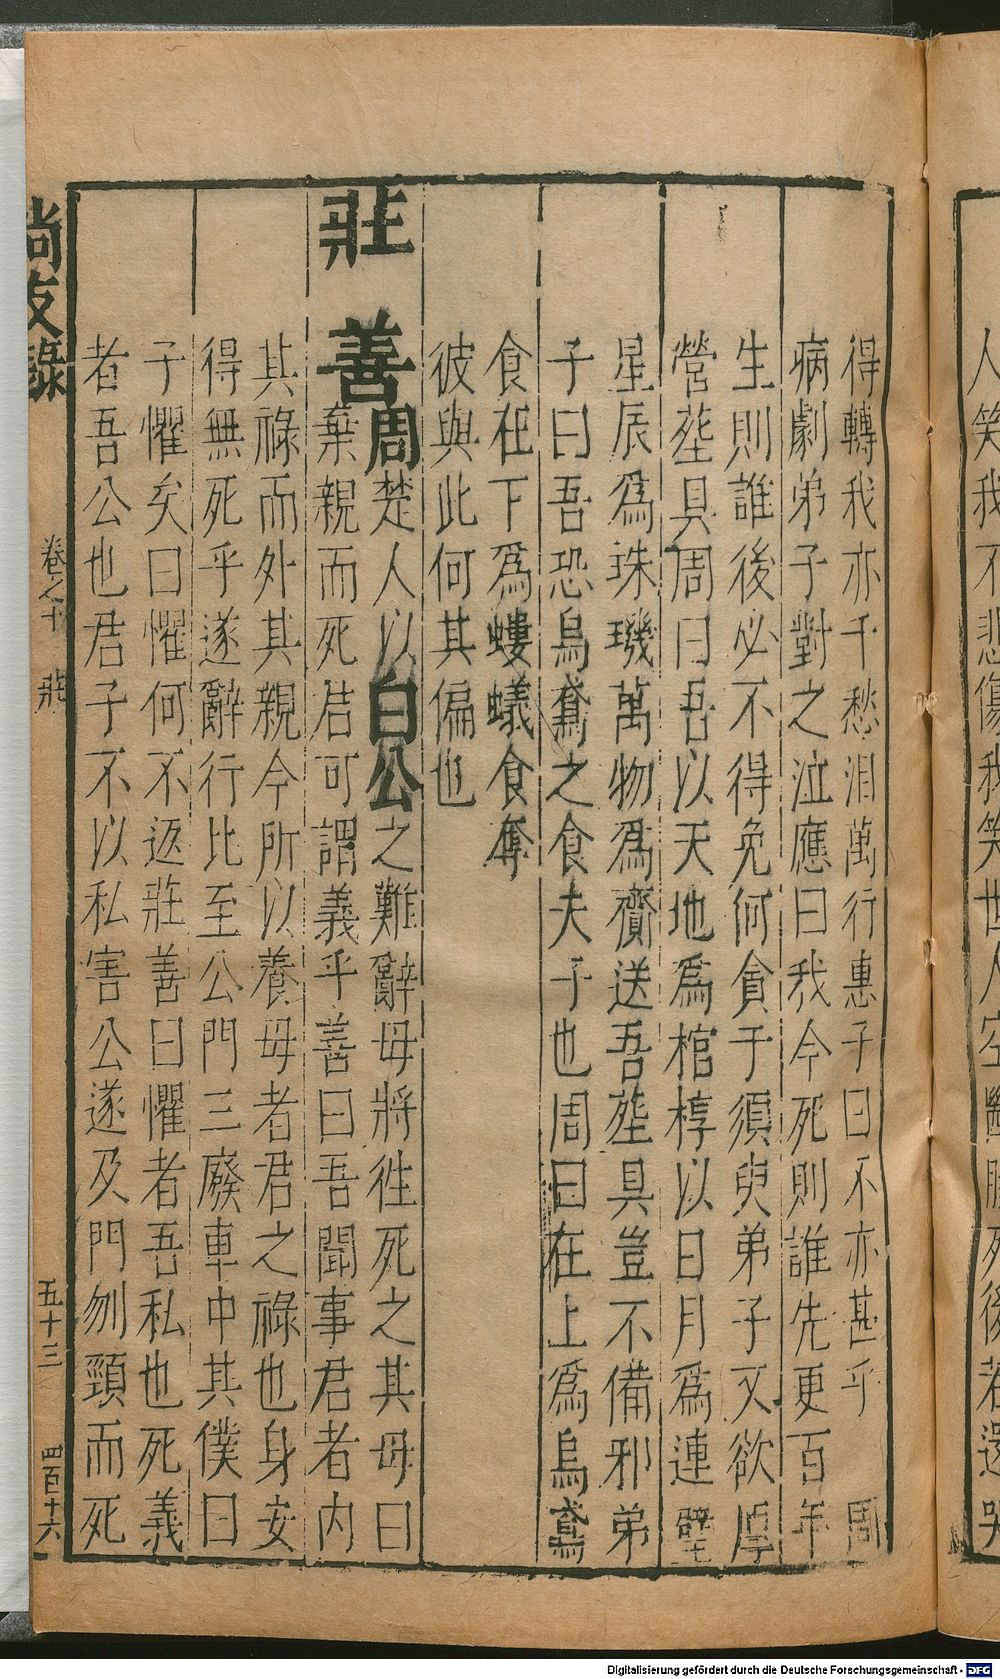 人笑我不悲傷我笑世人空斷腸死後若還哭
得轉我亦千愁淚萬行惠子曰不亦甚乎 周
病劇弟子對之泣應曰我今死則誰先更百年
生則誰後必不得免何貪于須臾弟子又欲厚
營塟具周曰吾以天地為棺椁以日月為連璧
星辰為珠璣萬物為齎送吾塟具豈不備邪弟
子曰吾恐烏鳶之食夫子也周曰在上為烏鳶
食在下為螻蟻食奪
彼與此何其偏也
莊善周楚人以白公之難辭母將徃死之其母曰
棄親而死君可謂義乎善曰吾聞事君者內
其祿而外其親今所以養母者君之祿也身安
得無死乎遂辭行比至公門三廢車中其僕曰
子懼矣曰懼何不返莊善曰懼者吾私也死義
者吾公也君子不以私害公遂及門刎頸而死
尚友錄 卷之十 莊 五十三 四百十六
Digitalisierung gefördert durch die Deutsche Forschungsgemeinschaft - DFG